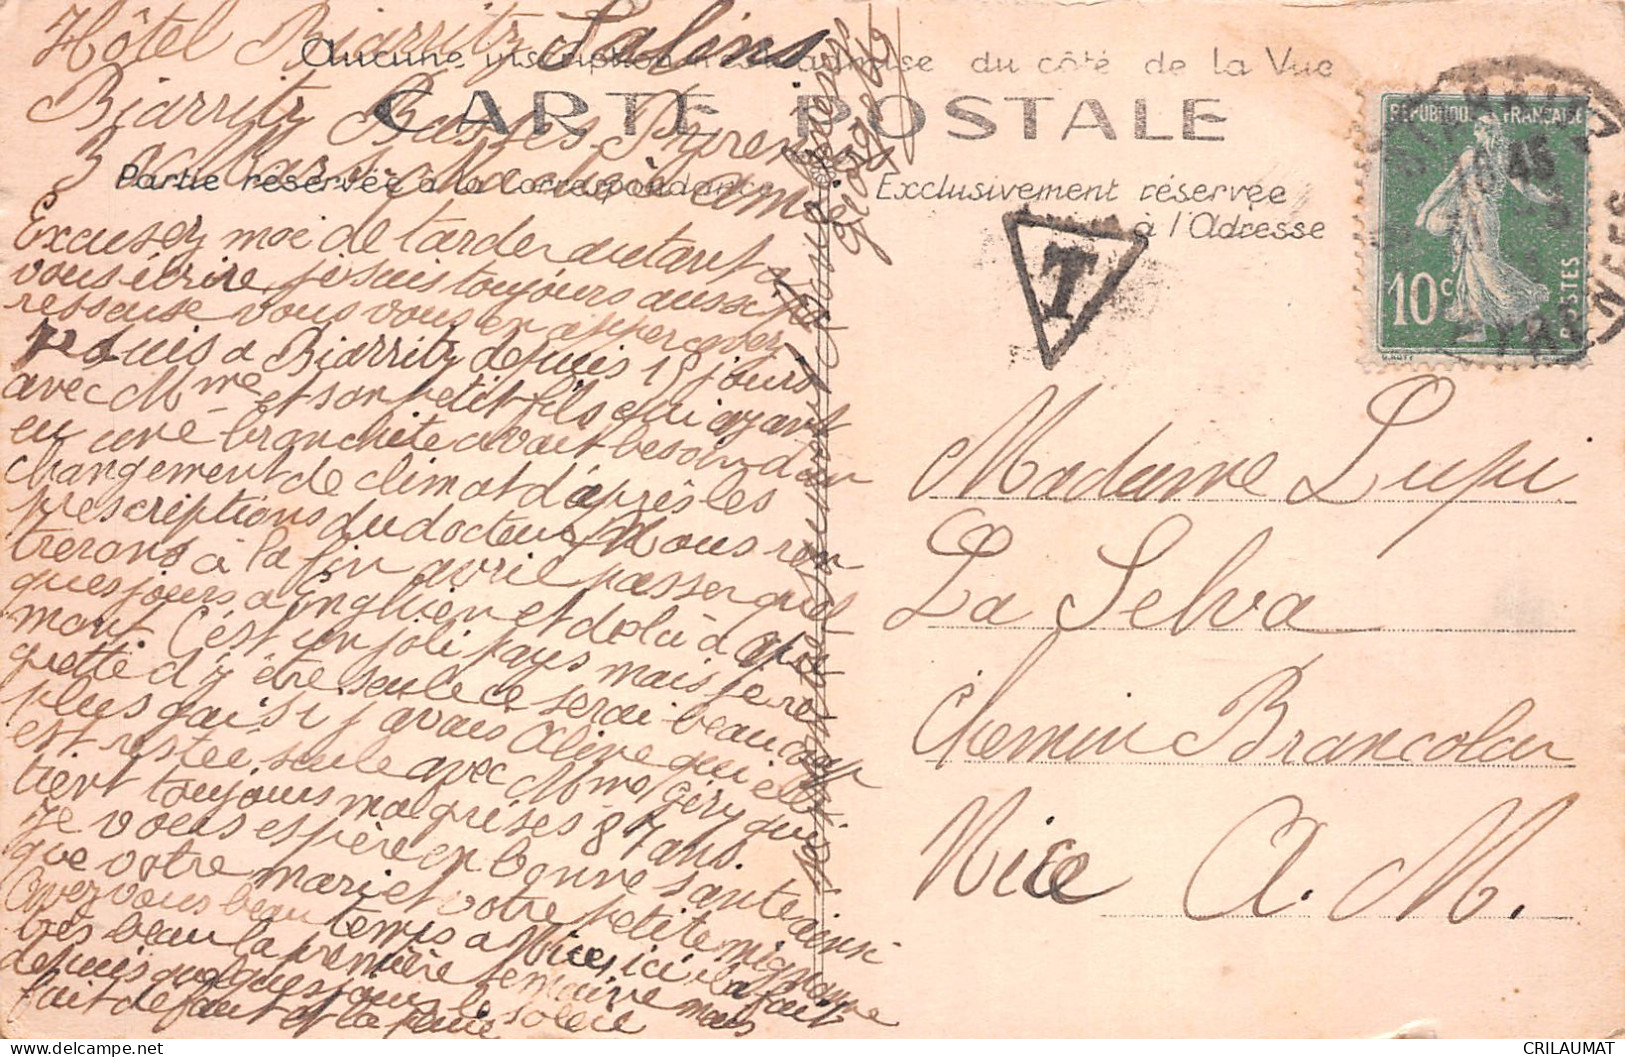 Hôtel Biarritz Salins
Aucune inscription n'est admise du côté de la Vue
Biarritz Basses Pyrenées
CARTE POSTALE
Chère Madame
Partie réservée à la Correspondance
Exclusivement réservée
à l'Adresse
Excusez moi de tarder autant a
vous écrire, je suis toujours aussi pa
resseuse vous vous en appercevez
suis a Biarritz depuis 15 jours
avec Mme et son petit fils qui ayant
eu une bronchite avait besoin d'un
changement de climat d'après les
prescriptions du docteur. Nous ren
trerons à la fin avril passer quel
ques jours a Enghien et de là à
mont. C'est un joli pays mais je re
grette d'y être seule ce serai beaucoup
plus gai si j'avais Aline qui elle
est restée seule avec Mme Géry qui
tient toujours malgré ses 87 ans.
Je vous espère en bonne santé ainsi
que votre mari et votre petite mignonne
Avez vous beau temps a Nice, ici il a fait
très beau la première semaine mais
depuis quelques jours le soleil
fait defaut et la pluie
T
REPUBLIQUE FRANÇAISE
10c
POSTES
Madame Lupi
La Selva
Chemin Brancolar
Nice A. M.
CRILAUMAT